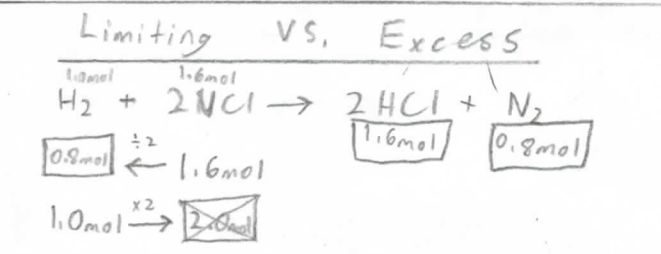 Limiting vs. Excess
1.0mol 1.6mol
H₂ + 2NCl → 2HCl + N₂
1.6mol 0.8mol
0.8mol ÷2 ← 1.6mol
1.0mol ×2 → 2.0mol